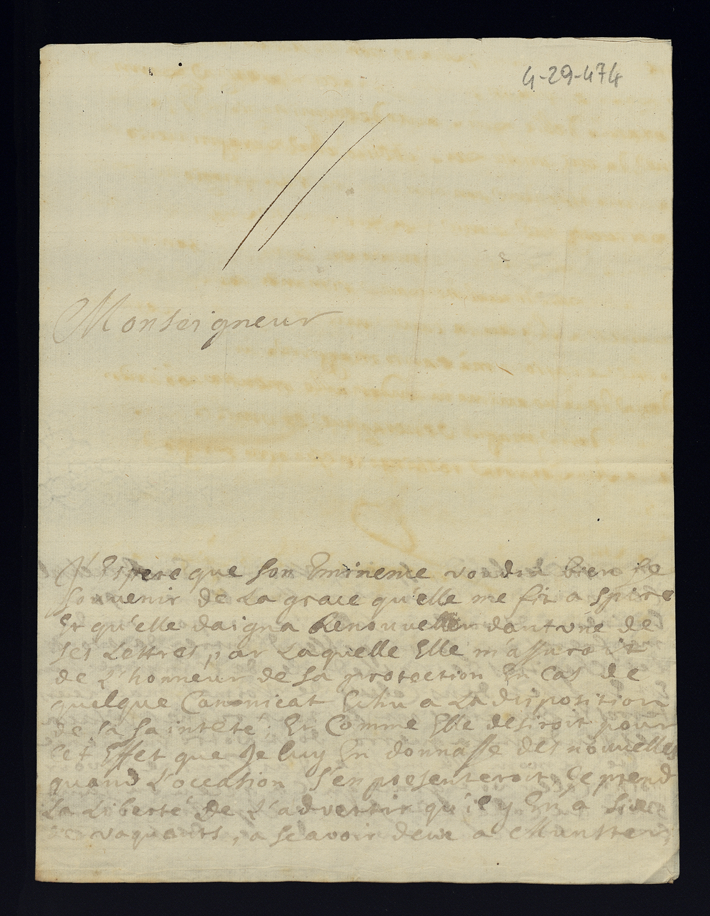 4-29-474
Monseigneur
J'Espere que son Eminence voudra bien se
souvenir de La grace qu'elle me fit a spire
Et qu'elle daigna Renouveller dans une de
ses Lettres, par Laquelle Elle m'assuroit
de L'honneur de sa protection En Cas de
quelque Canonicat Echu a La disposition
de sa sainteté, Et Comme Elle desiroit pour
cet Effet que Je luy En donnasse des nouvelles
quand L'occasion s'en presenteroit, Je prend
La Liberté de L'advertir qu'il y En a
vaquants, a sçavoir deux a Munster,